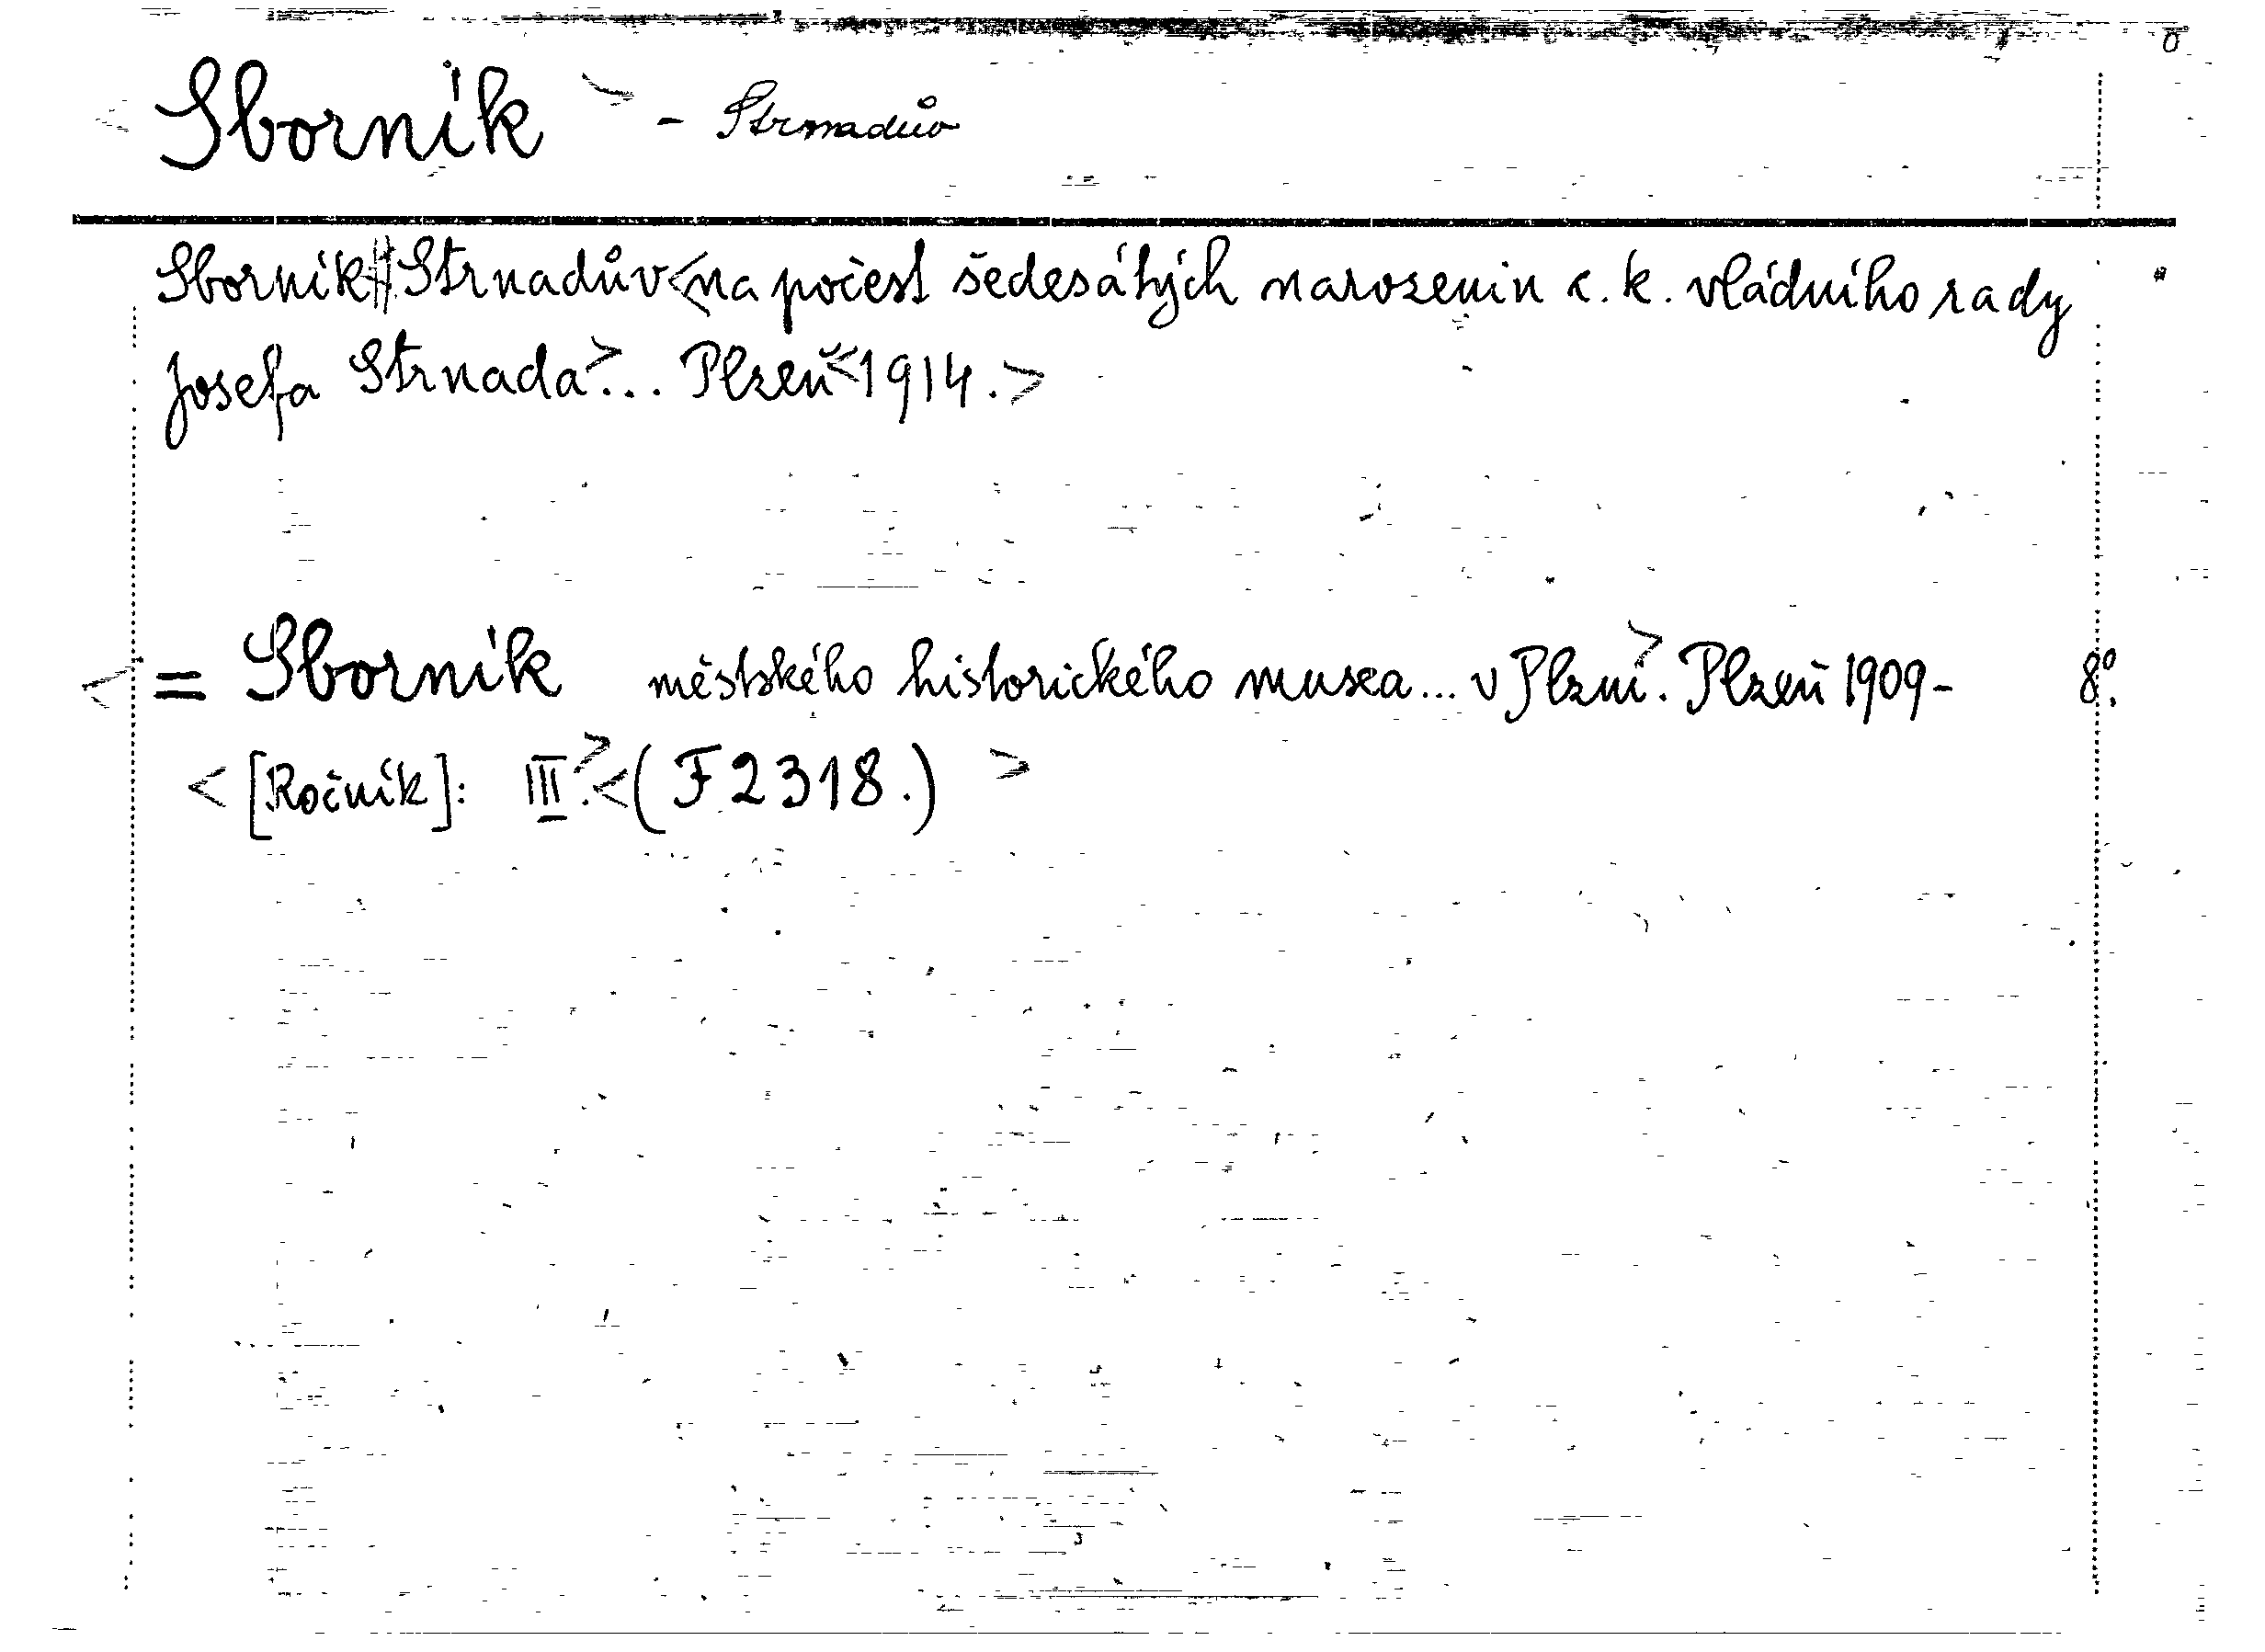 < Sborník > - Strnadův
Sborník || Strnadův < na počest šedesátých narozenin c. k. vládního rady
Josefa Strnada > ... Plzeň < 1914. >
< = Sborník městského historického musea ... v Plzni >. Plzeň 1909- 8°.
< [Ročník]: III. > < (F 2318.) >